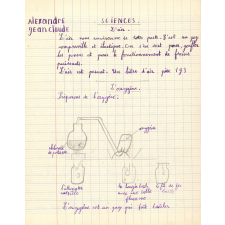 alexandre
jean claude
SCIENCES.
L'air.
L'air nous environne de toute part. C'est un gaz
compressible et élastique. On s'en sert pour gonfler
les pneus et pour le fonctionnement de freins
puissants.
L'air est pesant. Un litre d'air pèse 1g3
L'oxygène.
Préparons de l'oxygène.
oxygène
chlorate
de potasse
l'allumette
fil de fer
L'oxygène est un gaz qui fait brûler